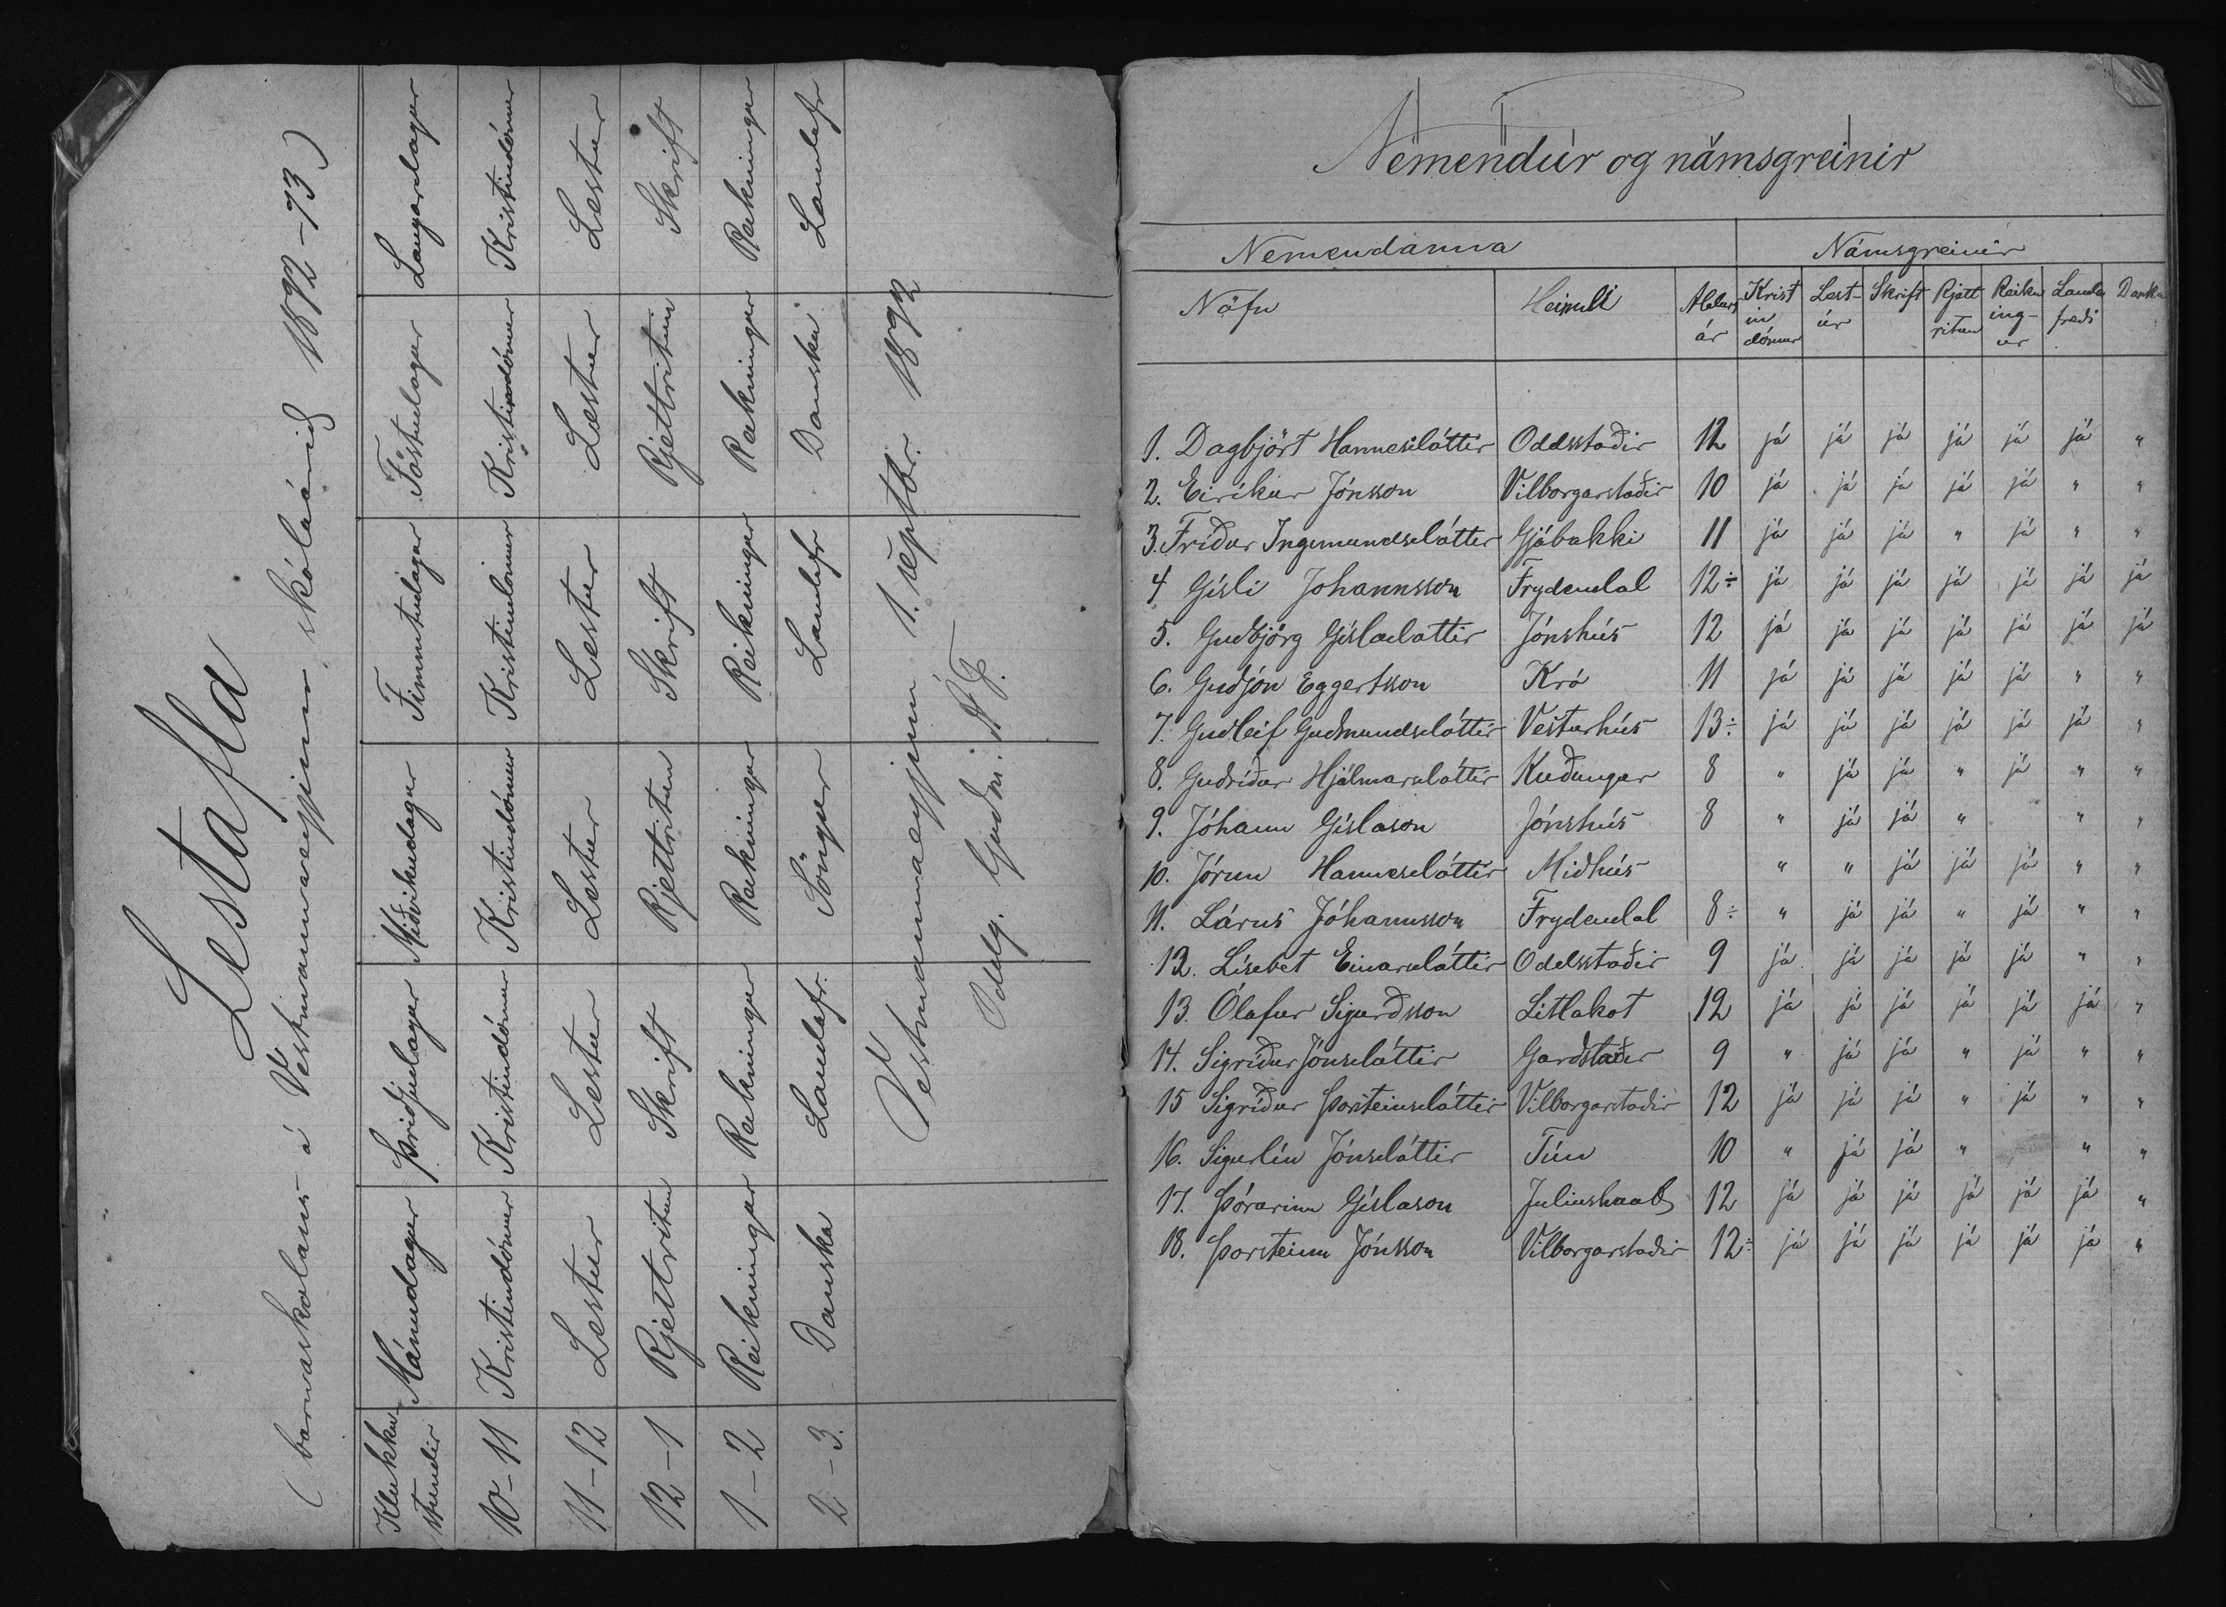 Lestafla
(barnaskolans á Vestmannaeyjum, skólaárið 1892-93)
Klukku- Mánudagur Þriðjudagur Miðvikudagur Fimmtudagur Föstudagur Laugardagur
stundir
10-11 Kristindómur Kristindómur Kristindómur Kristindómur Kristindómur Kristindómur
11-12 Lestur Lestur Lestur Lestur Lestur Lestur
12-1 Rjettritun Skrift Rjettritun Skrift Rjettritun Skrift
1-2 Reikningur Reikningur Reikningur Reikningur Reikningur Reikningur
2-3. Danska Landafr. Söngur Landafr Danska Landafr
Vestmannaeyjum 1. septbr. 1892
Oddg. Guðm.
Nemendur og námsgreinir
Nemendanna Námsgreinir
Nöfn Heimili Aldurs Krist Lest- Skrift Rjett Reikn Landa Danska
ár in úr ritun ing- fræði
dómur ur
1. Dagbjört Hannesdóttir Oddsstaðir 12 já já já já já já "
2. Eiríkur Jónsson Vilborgarstaðir 10 já já já já já " "
3. Fríður Ingimundsdóttir Gjábakki 11 já já já " já " "
4 Gísli Johannsson Frydendal 12÷ já já já já já já já
5. Guðbjörg Gísladottir Jónshús 12 já já já já já já já
6. Guðjón Eggertsson Kró 11 já já já já já " "
7. Guðleif Guðmundsdóttir Vesturhús 13÷ já já já já já já "
8. Guðríður Hjálmarsdóttir Kuðungur 8 " já já " já " "
9. Jóhann Gíslason Jónshús 8 " já já " " "
10. Jórun Hannesdóttir Miðhús " " já já já " "
11. Lárus Jóhannsson Frydendal 8÷ " já já " já " "
12. Lísebet Einarsdóttir Oddsstaðir 9 já já já já já " "
13. Ólafur Sigurðsson Litlakot 12 já já já já já já "
14. Sigríður Jónsdóttir Garðstaðir 9 " já já " já " "
15 Sigríður Þorsteinsdóttir Vilborgarstaðir 12 já já já " já " "
16. Sigurlín Jónsdóttir Tún 10 " já já " " "
17. Þórarinn Gíslason Juliushaab 12 já já já já já já "
18. Þorsteinn Jónsson Vilborgarstaðir 12÷ já já já já já já "